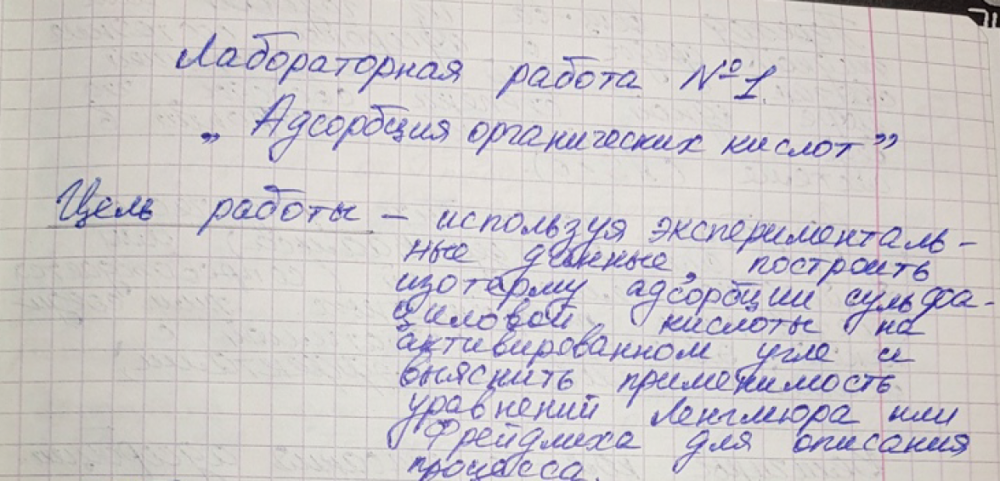 Лабораторная работа №1.
„ Адсорбция органических кислот"
Цель работы – используя эксперименталь-
ные данные, построить
изотерму адсорбции сульфа-
циловой кислоты на
активированном угле и
выяснить применимость
уравнений Ленгмюра или
Фрейдлиха для описания
процесса.